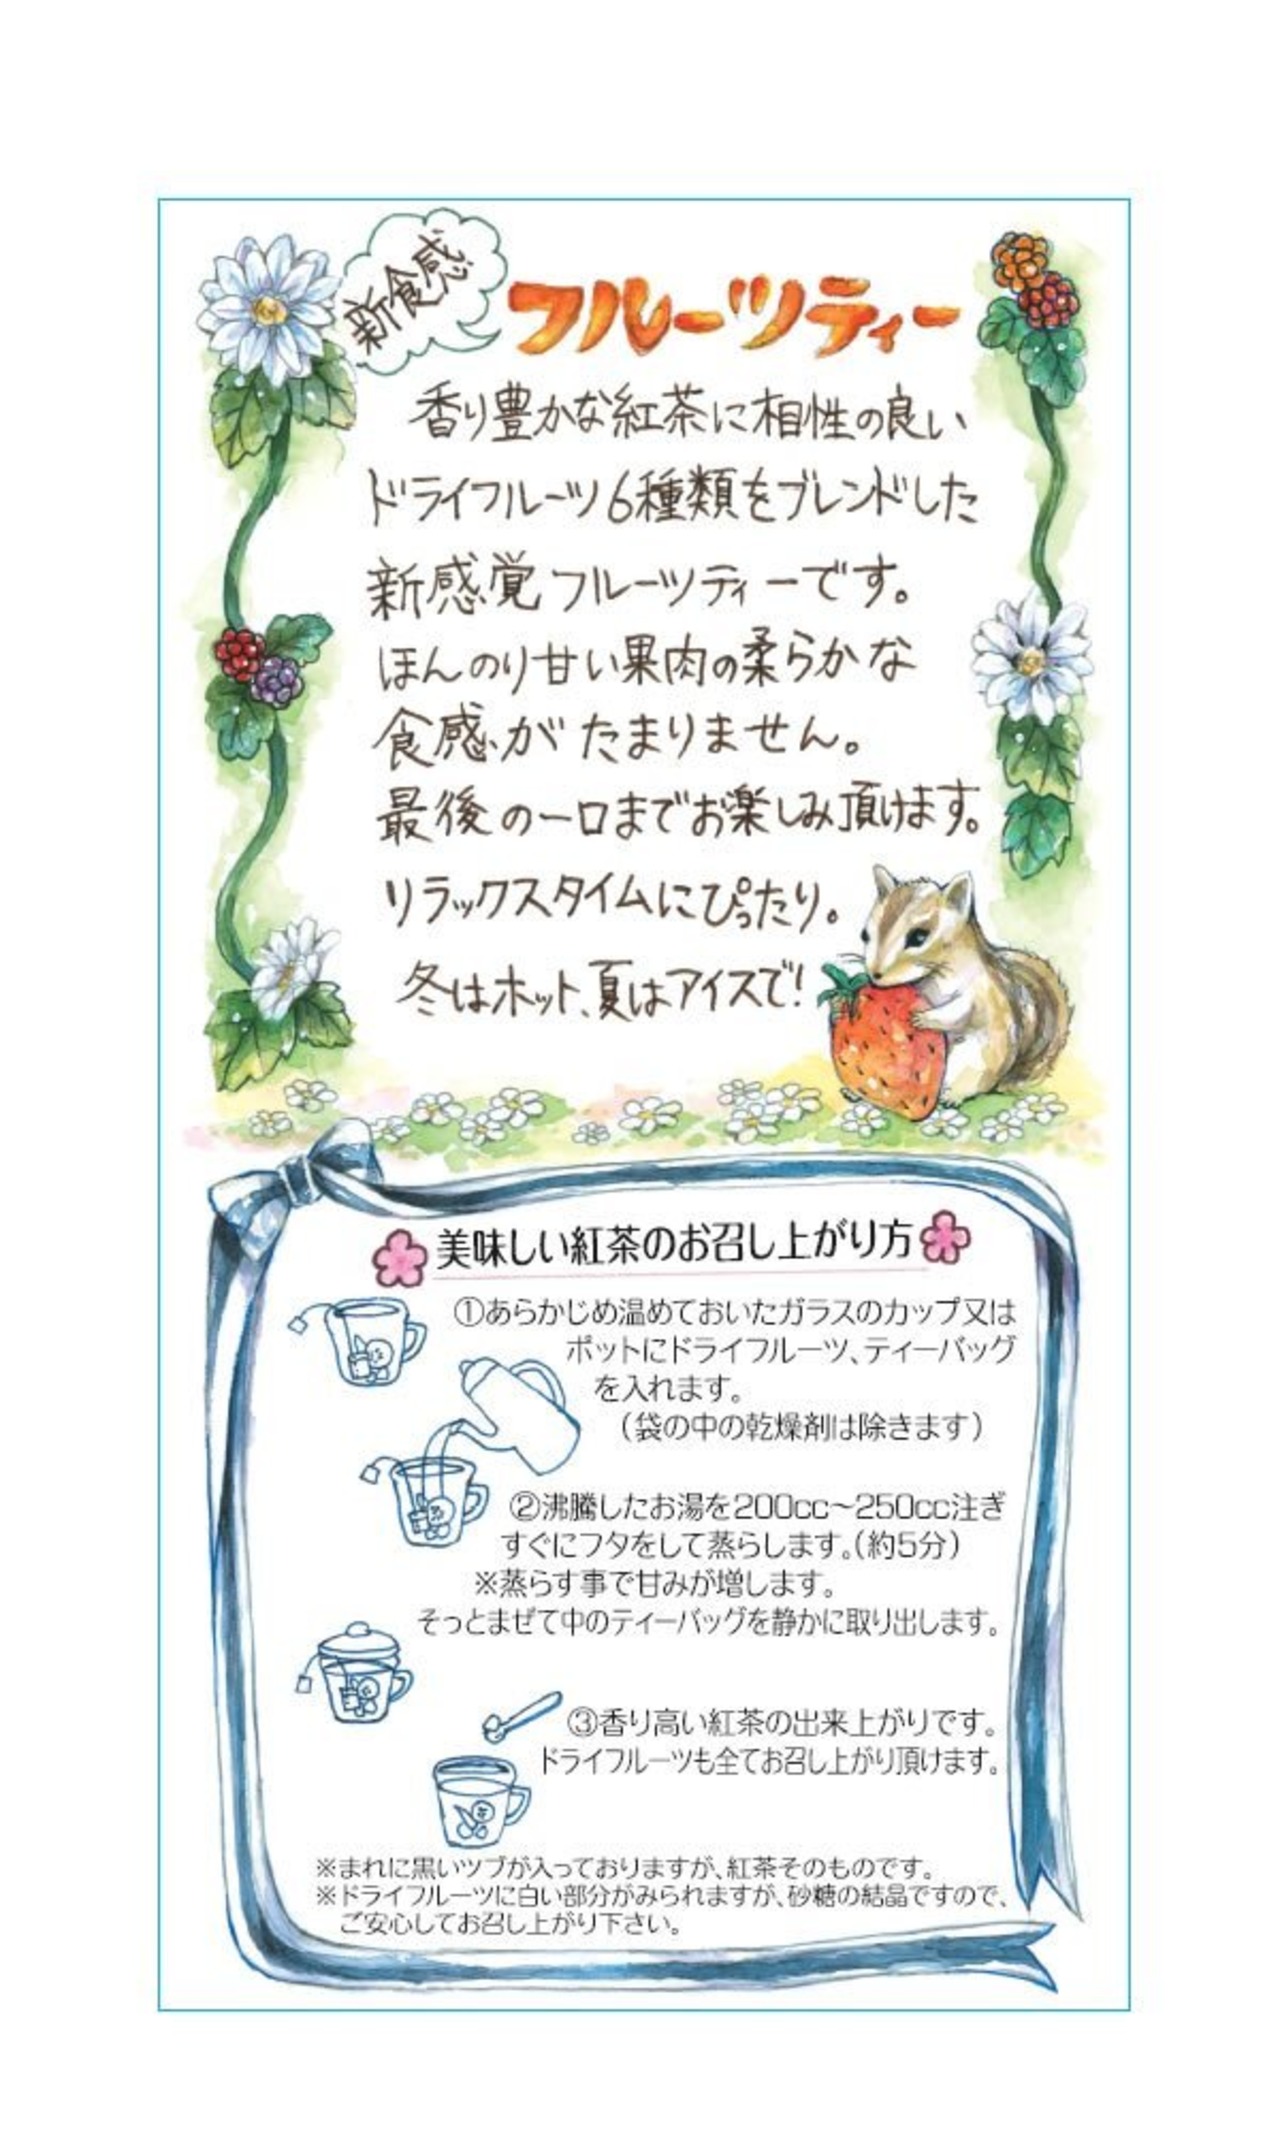 新食感
フルーツティー
香り豊かな紅茶に相性の良い
ドライフルーツ6種類をブレンドした
新感覚フルーツティーです。
ほんのり甘い果肉の柔らかな
食感がたまりません。
最後の一口までお楽しみ頂けます。
リラックスタイムにぴったり。
冬はホット、夏はアイスで!
美味しい紅茶のお召し上がり方
①あらかじめ温めておいたガラスのカップ又は
ポットにドライフルーツ、ティーバッグ
を入れます。
(袋の中の乾燥剤は除きます)
②沸騰したお湯を200cc〜250cc注ぎ
すぐにフタをして蒸らします。(約5分)
※蒸らす事で甘みが増します。
そっとまぜて中のティーバッグを静かに取り出します。
③香り高い紅茶の出来上がりです。
ドライフルーツも全てお召し上がり頂けます。
※まれに黒いツブが入っておりますが、紅茶そのものです。
※ドライフルーツに白い部分がみられますが、砂糖の結晶ですので、
ご安心してお召し上がり下さい。